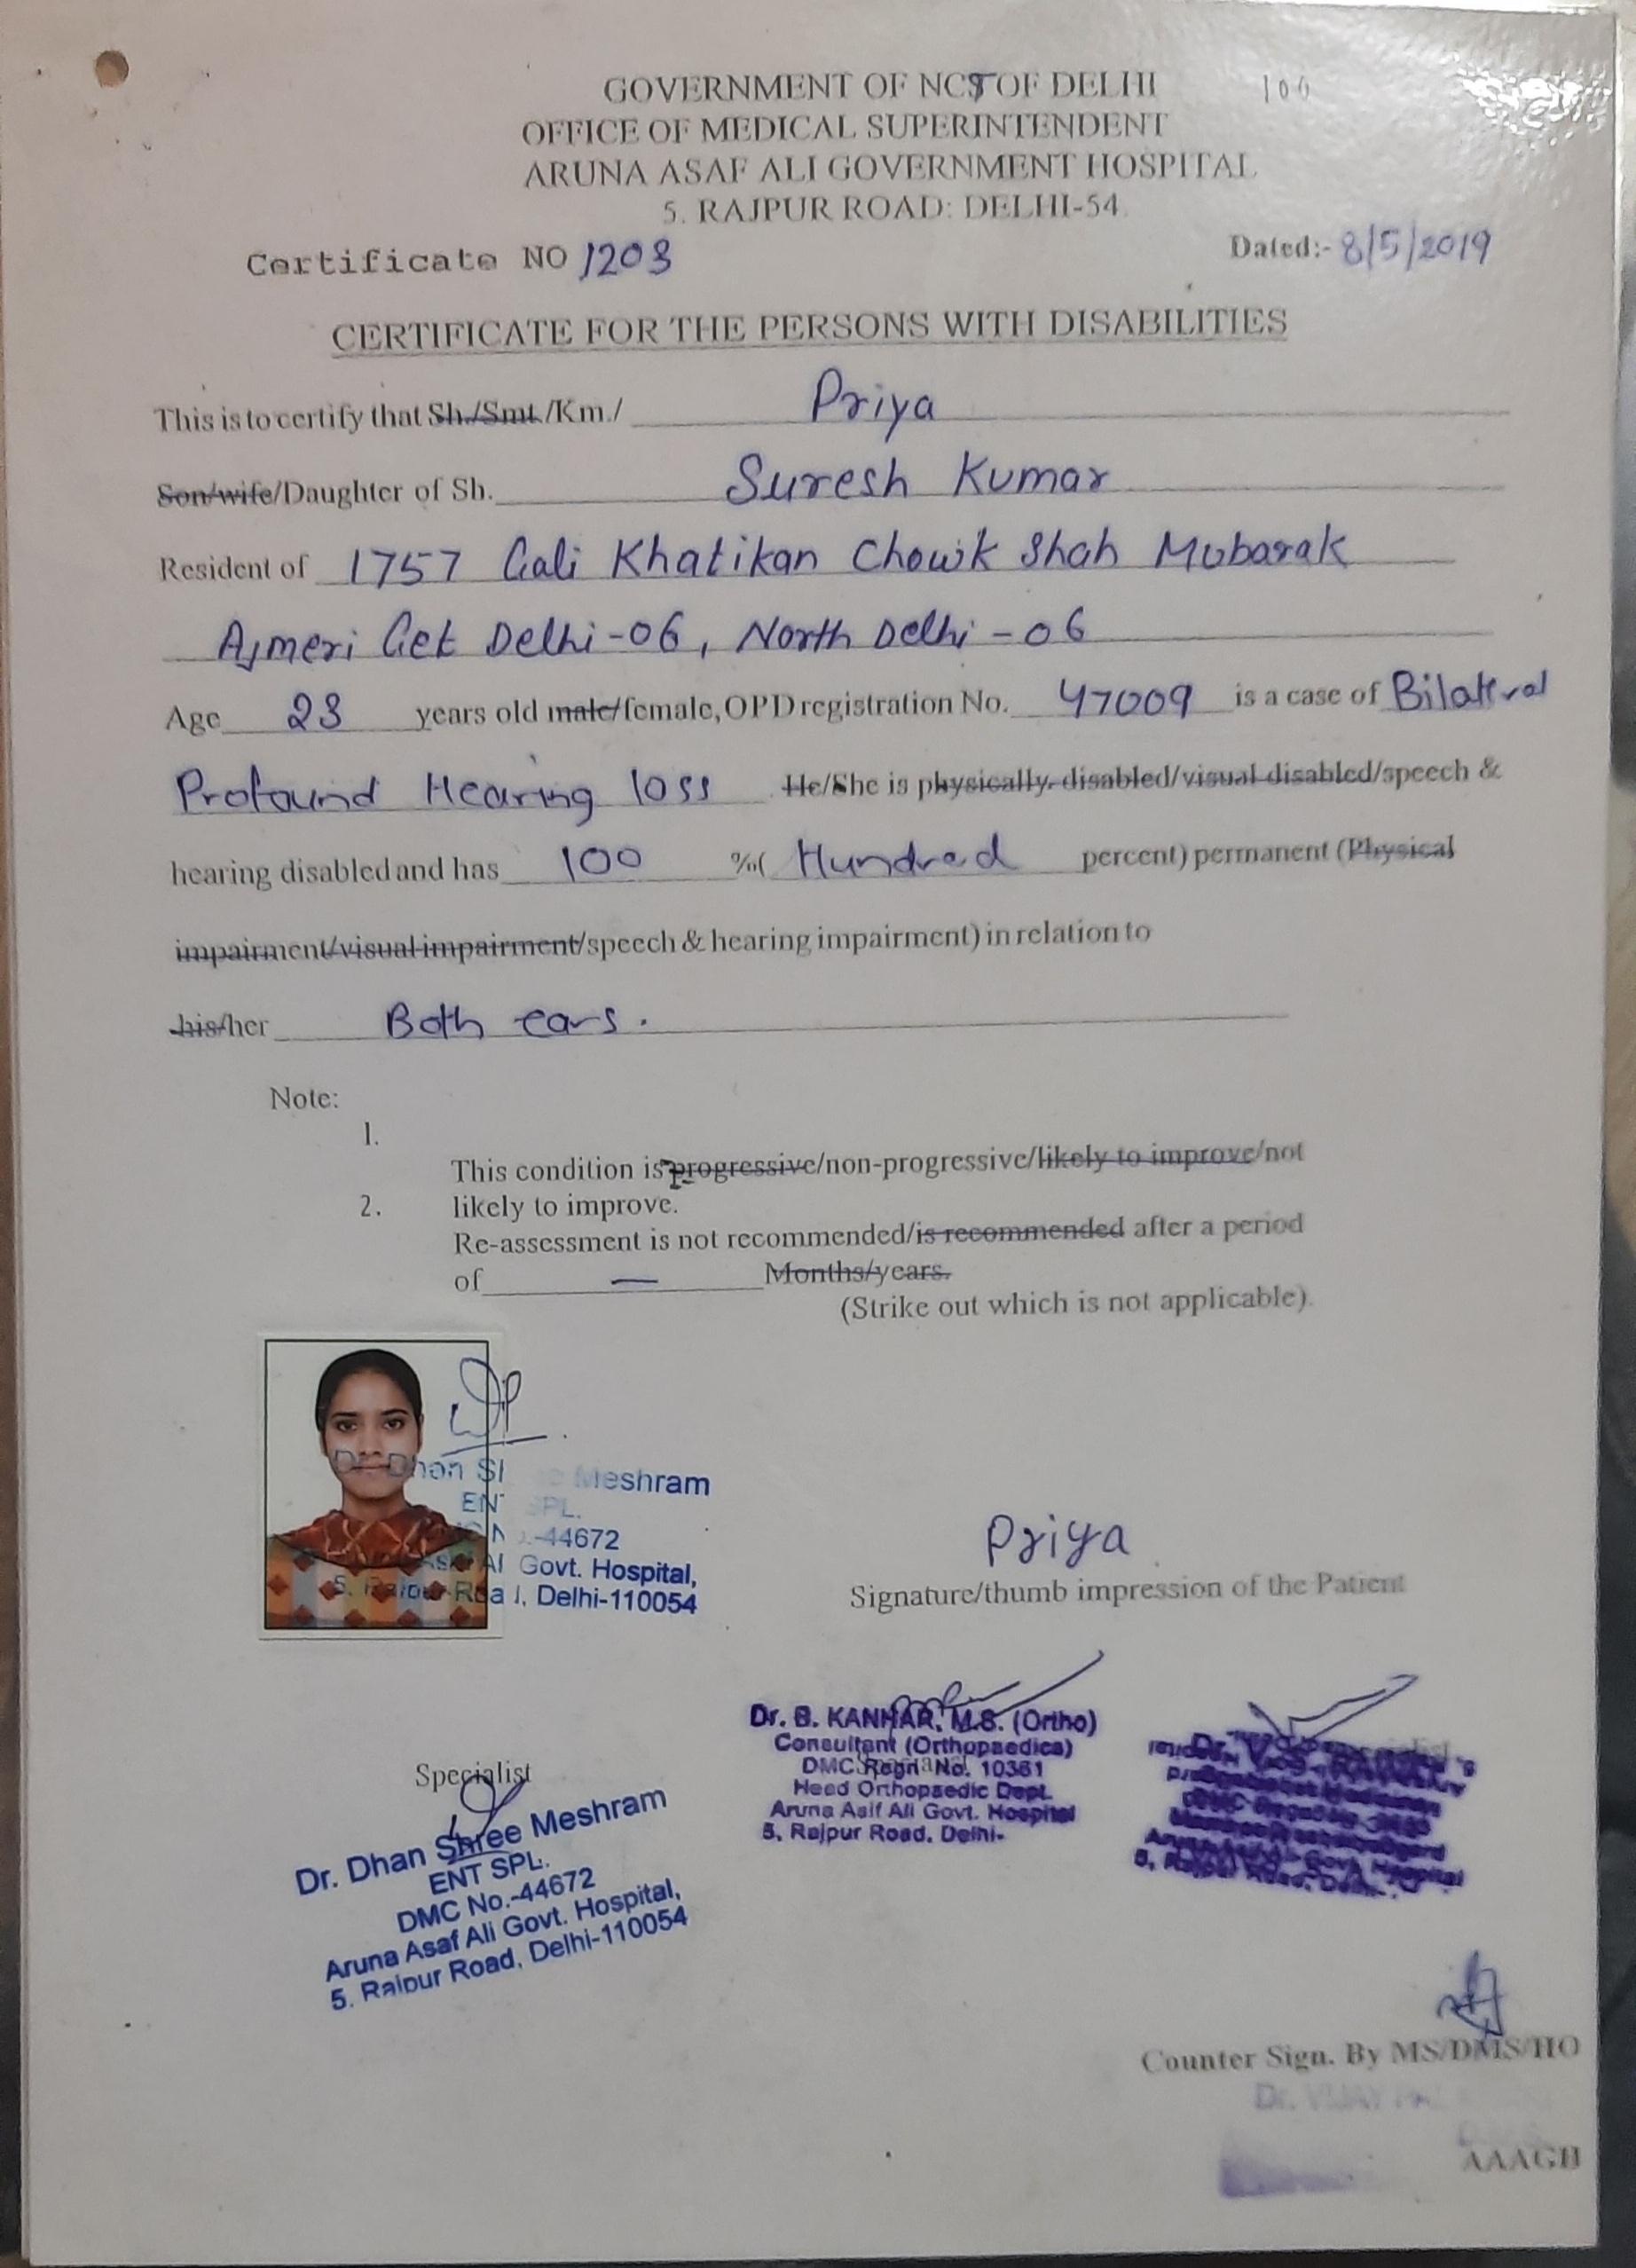 GOVERNMENT OF NCT OF DELHI
OFFICE OF MEDICAL SUPERINTENDENT
ARUNA ASAF ALI GOVERNMENT HOSPITAL
5. RAJPUR ROAD: DELHI-54
Certificate NO 1203 Dated:- 8/5/2019
CERTIFICATE FOR THE PERSONS WITH DISABILITIES
This is to certify that Sh./Smt./Km./ Priya
Son/wife/Daughter of Sh. Suresh Kumar
Resident of 1757 Gali Khatikan Chowk Shah Mubarak
Ajmeri Get Delhi-06, North Delhi-06
Age 23 years old male/female, OPD registration No. 47009 is a case of Bilateral
Profound Hearing loss He/She is physically disabled/visual disabled/speech &
hearing disabled and has 100 %( Hundred percent) permanent (Physical
impairment/visual impairment/speech & hearing impairment) in relation to
his/her Both ears.
Note:
1.
This condition is progressive/non-progressive/likely to improve/not
2. likely to improve.
Re-assessment is not recommended/is recommended after a period
of — Months/years.
(Strike out which is not applicable).
Meshram
ENT SPL.
-44672
Govt. Hospital,
5. Rajpur Road, Delhi-110054
Priya
Signature/thumb impression of the Patient
Specialist
Dr. Dhan Shree Meshram
ENT SPL.
DMC No.-44672
Aruna Asaf Ali Govt. Hospital,
5. Rajpur Road, Delhi-110054
Dr. B. KANHAR, M.S. (Ortho)
Consultant (Orthopaedics)
DMC Regn. No. 10361
Head Orthopaedic Dept.
Aruna Asif Ali Govt. Hospital
5, Rajpur Road, Delhi-
Counter Sign. By MS/DMS/HO
Dr. VIJAY
AAAGH